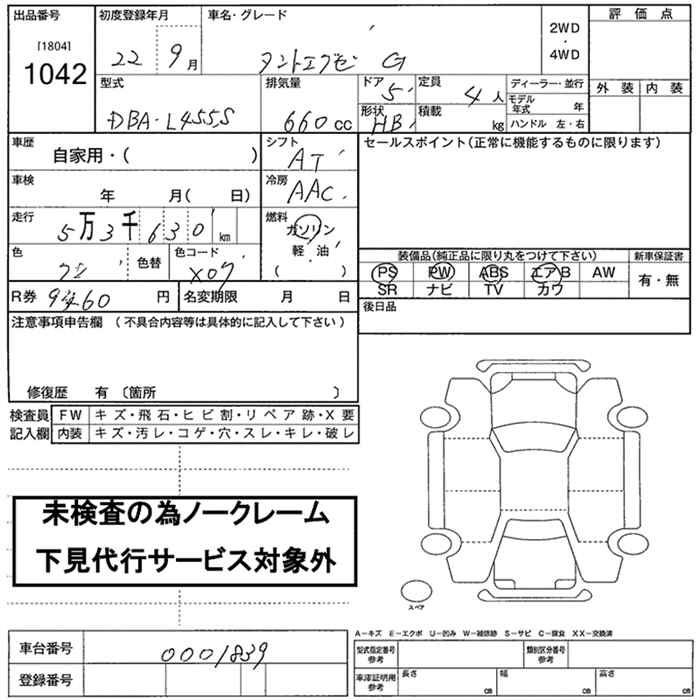 出品番号 初度登録年月 車名・グレード 評価点
[1804] 2WD
1042 22 9月 タントエグゼ G ・
4WD
型式 排気量 ドア 定員 ディーラー・並行 外装 内装
5 4人 モデル年式 年
DBA-L455S 660cc 形状 積載
HB kg ハンドル 左・右
車歴 シフト セールスポイント(正常に機能するものに限ります)
自家用・( ) AT
車検 冷房
年 月( 日) AAC
走行 燃料
5万3千630km ガソリン
軽・油
色 色替 色コード ( )
X07
装備品(純正品に限り丸をつけて下さい) 新車保証書
PS PW ABS エアB AW 有・無
SR ナビ TV カワ
R券 円 名変期限 月 日 後日品
注意事項申告欄 (不具合内容等は具体的に記入して下さい)
修復歴 有 〔箇所 〕
検査員 FW キズ・飛石・ヒビ割・リペア跡・X要
記入欄 内装 キズ・汚レ・コゲ・穴・スレ・キレ・破レ
未検査の為ノークレーム
下見代行サービス対象外
スペア
A-キズ E-エクボ U-凹み W-補修跡 S-サビ C-腐食 XX-交換済
車台番号 0001839
登録番号
型式指定番号 参考 類別区分番号 参考
車庫証明用 参考 長さ cm 幅 cm 高さ cm